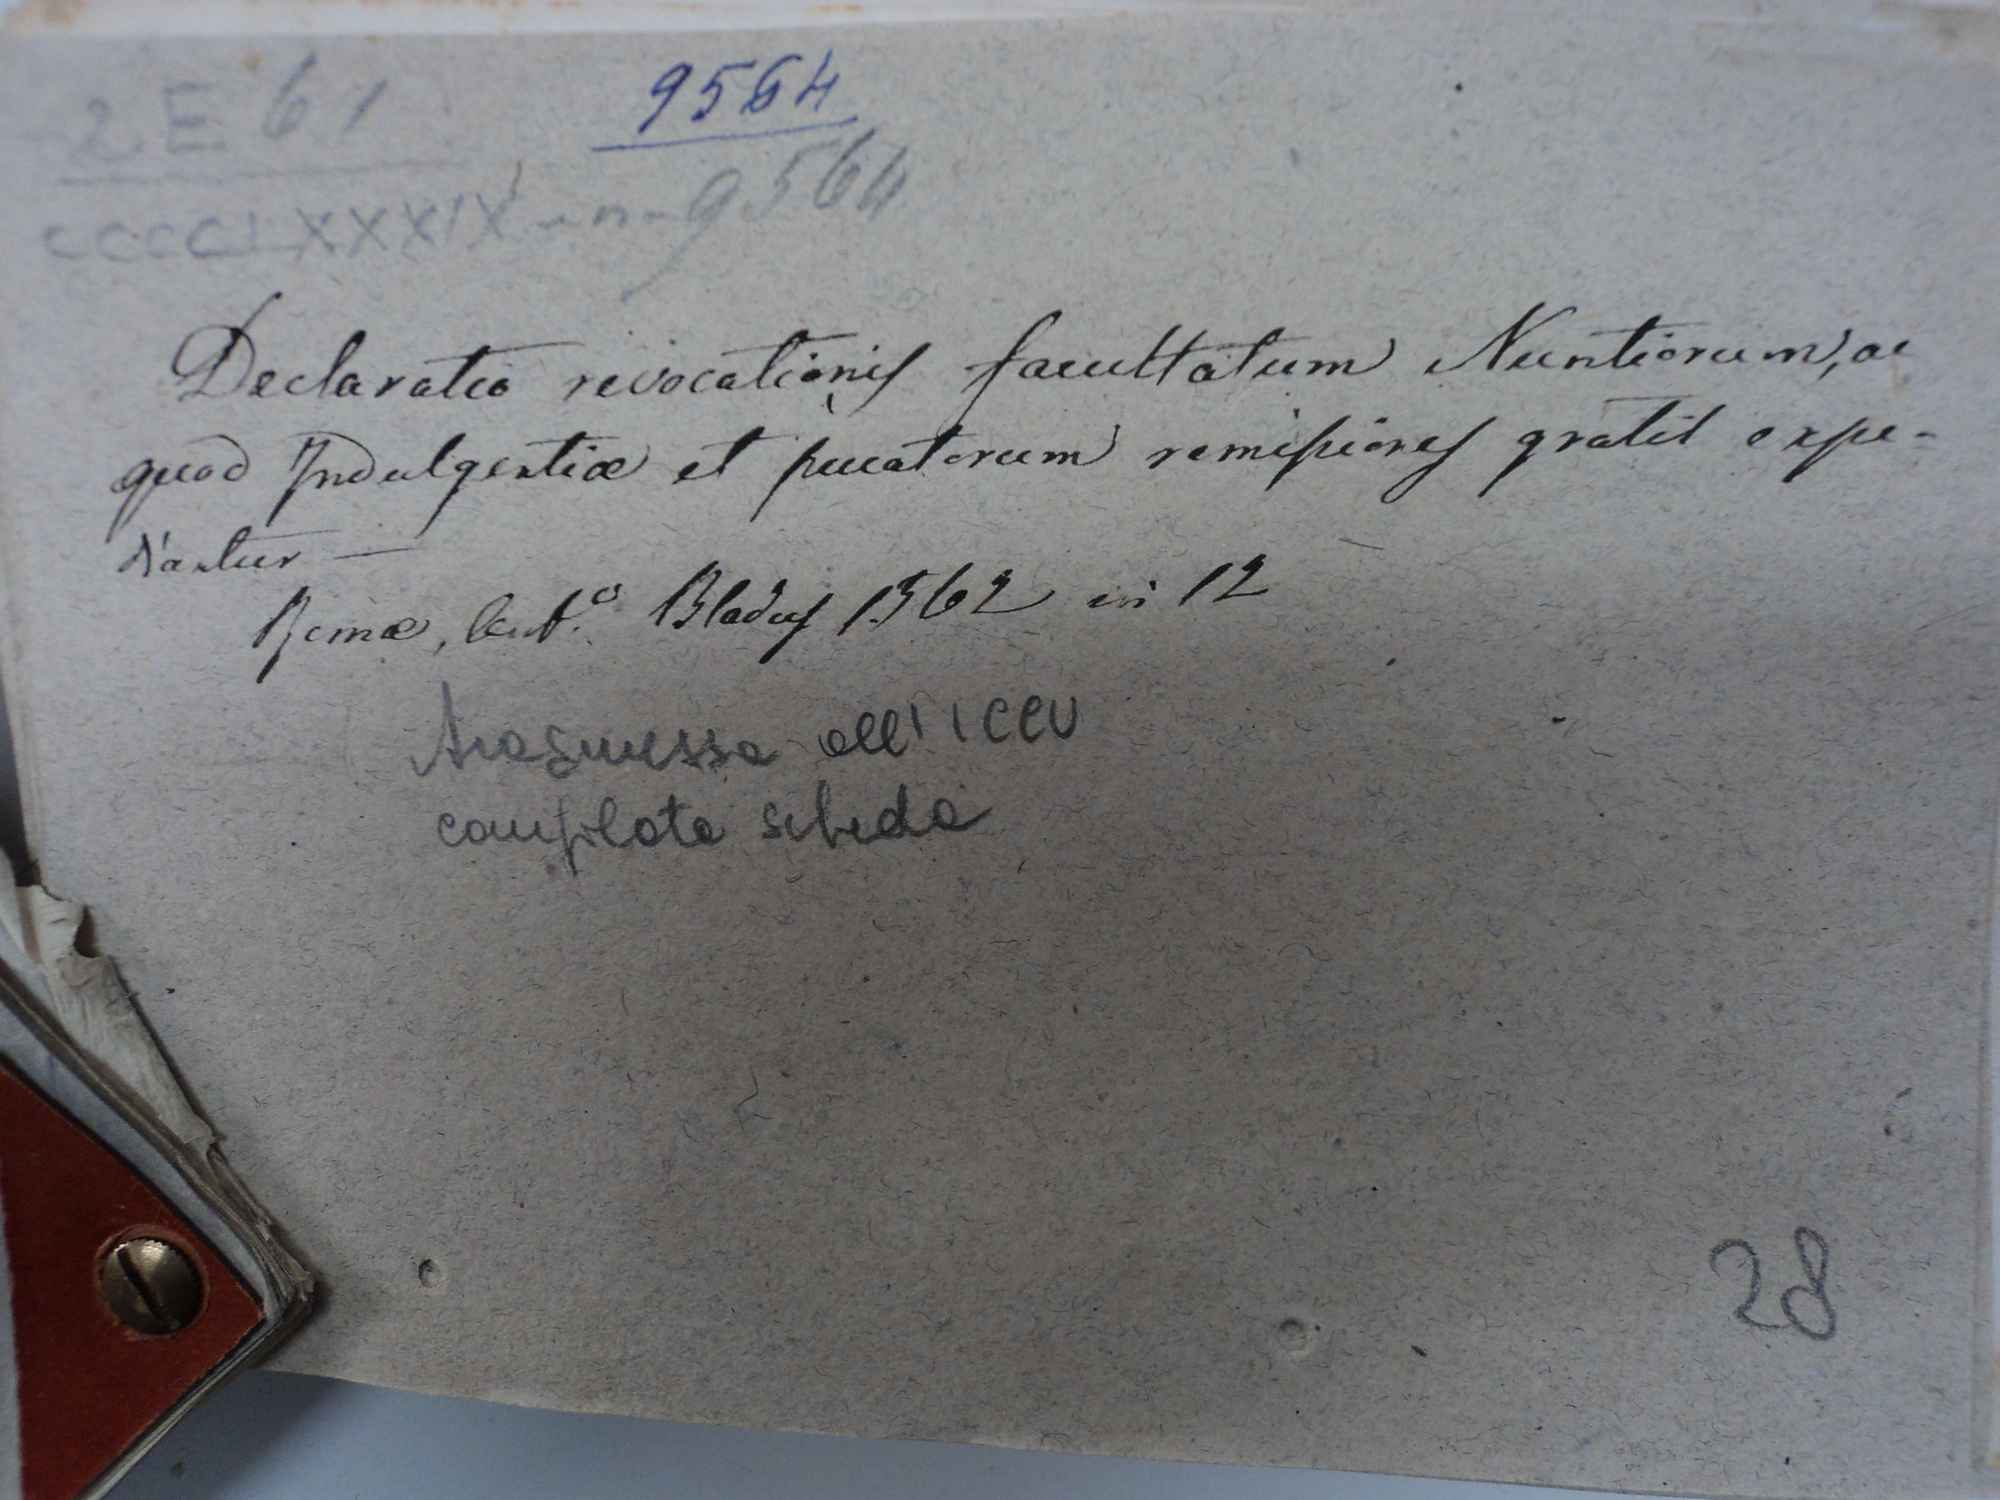 2 E 61
9564
CCCCLXXXIX - n - 9564
Declaratio revocationis facultatum Nuntiorum, ac
quod Indulgentiæ et peccatorum remissiones gratis expe-
diantur —
Romæ, Ant.º Bladus 1562 in 12
trasmessa all'ICCU
compilata scheda
28